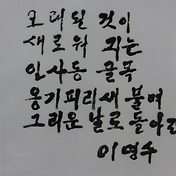 오래된 것이
새로워 지는
인사동 골목
옹기피리새 불며
그리운 날로 돌아간
이영수